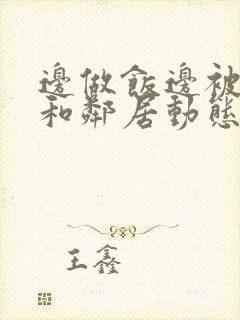 邊做飯邊被
和鄰居動態
王鑫